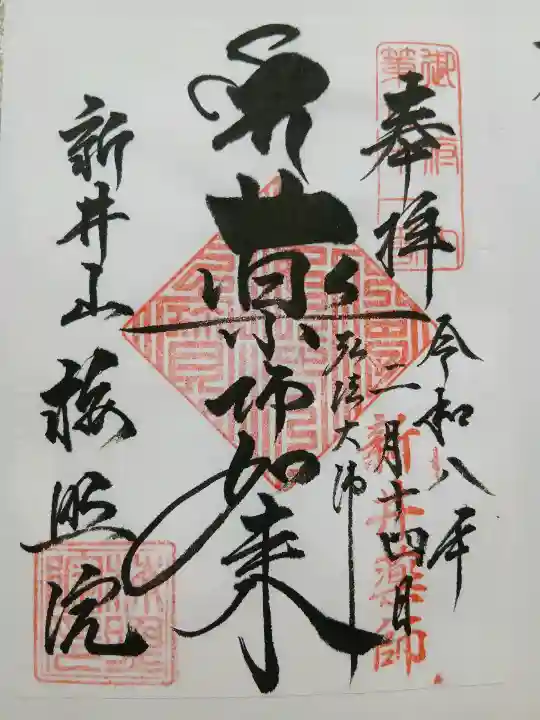 奉拝
令和八年
二月十四日
新井薬師
弘法大師
薬師如来
新井山梅照院